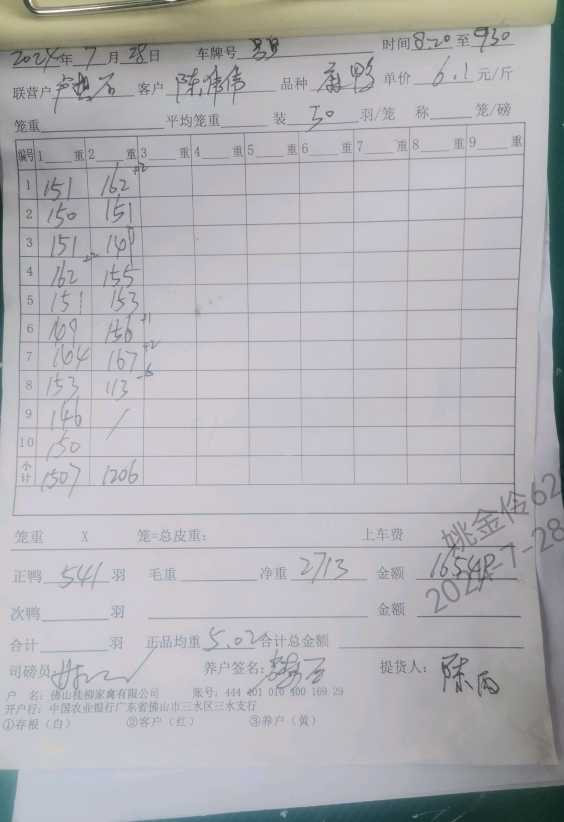 2024年7月28日 车牌号 时间8:20至930
联营户 客户 陈伟伟 品种 麻鸭 单价 6.1 元/斤
笼重 平均笼重 装 50 羽/笼 称 笼/磅
编号 1 重 2 重 3 重 4 重 5 重 6 重 7 重 8 重 9 重
1 151 162 +2
2 150 151
3 151
4 162 +2 155
5 151 153
6 169 156 +1
7 164 167 +2
8 153 113
9 146 /
10 150
小计 1507 1206
笼重 X 笼=总皮重: 上车费
正鸭 541 羽 毛重 净重 2713 金额
次鸭 羽 金额
合计 羽 正品均重 5.02 合计总金额
司磅员 养户签名: 提货人:
户 名: 佛山桂柳家禽有限公司 账号: 444 401 010 400 169 29
开户行: 中国农业银行广东省佛山市三水区三水支行
①存根(白) ②客户(红) ③养户(黄)
姚金伶62
2024-7-28